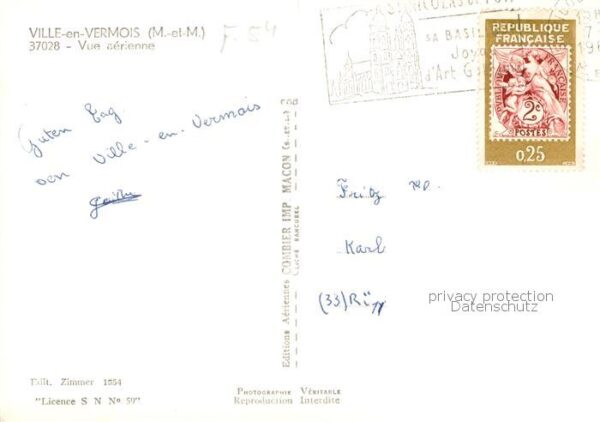 VILLE-en-VERMOIS (M.-et-M.)
37028 - Vue aérienne
F 54
SA BASIL
Joya
d'Art G
REPUBLIQUE
FRANÇAISE
2c
POSTES
0,25
Guten Tag
von Ville-en-Vermois
Editions Aériennes COMBIER IMP. MACON (S.-et-L.)
Fritz
Karl
(33)
privacy protection
Datenschutz
Edit. Zimmer 1554
"Licence S N N° 59"
PHOTOGRAPHIE VÉRITABLE
Reproduction Interdite